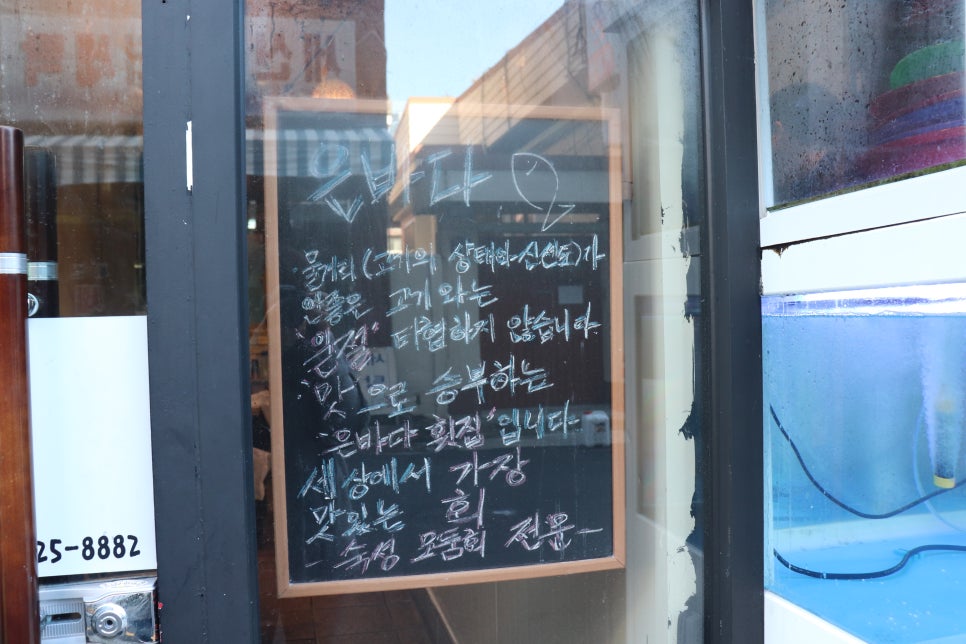 은바다
물거리(고기의 상태와 신선도)가
안좋은 고기와는
"일절" 타협하지 않습니다.
'맛'으로 승부하는
'은바다 횟집'입니다.
세상에서 가장
맛있는 회
- 숙성 모둠회 전문 -
25-8882